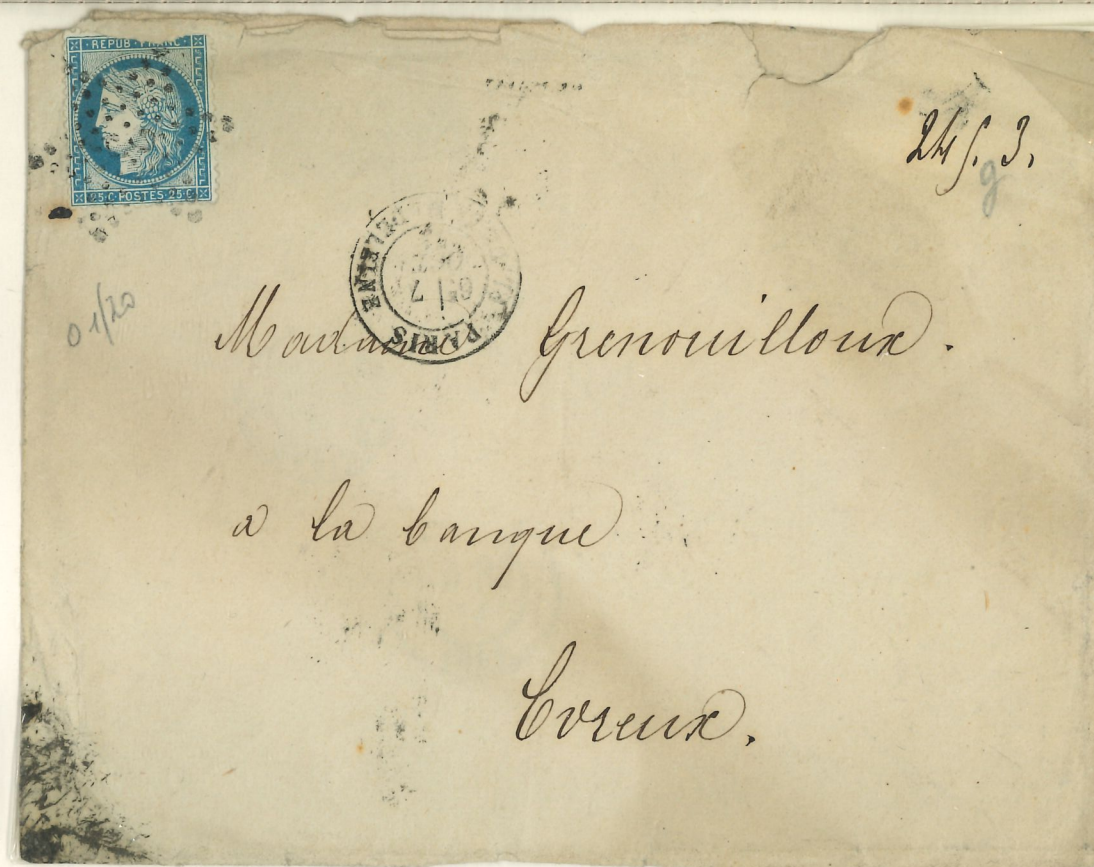 REPUB · FRANC
25 · C · POSTES · 25 · C
24 f. 3.
PARIS
01/20
Madame Grenouilloux.
a la banque
Evreux.